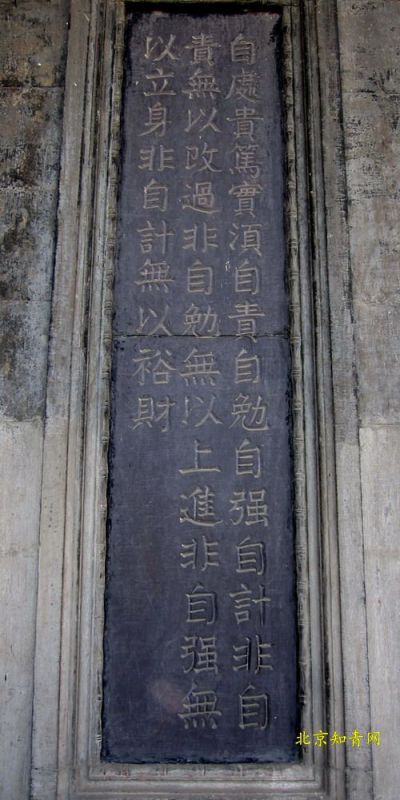 自處貴篤實須自責自勉自强自計非自
責無以改過非自勉無以上進非自强無
以立身非自計無以裕財
北京知青网